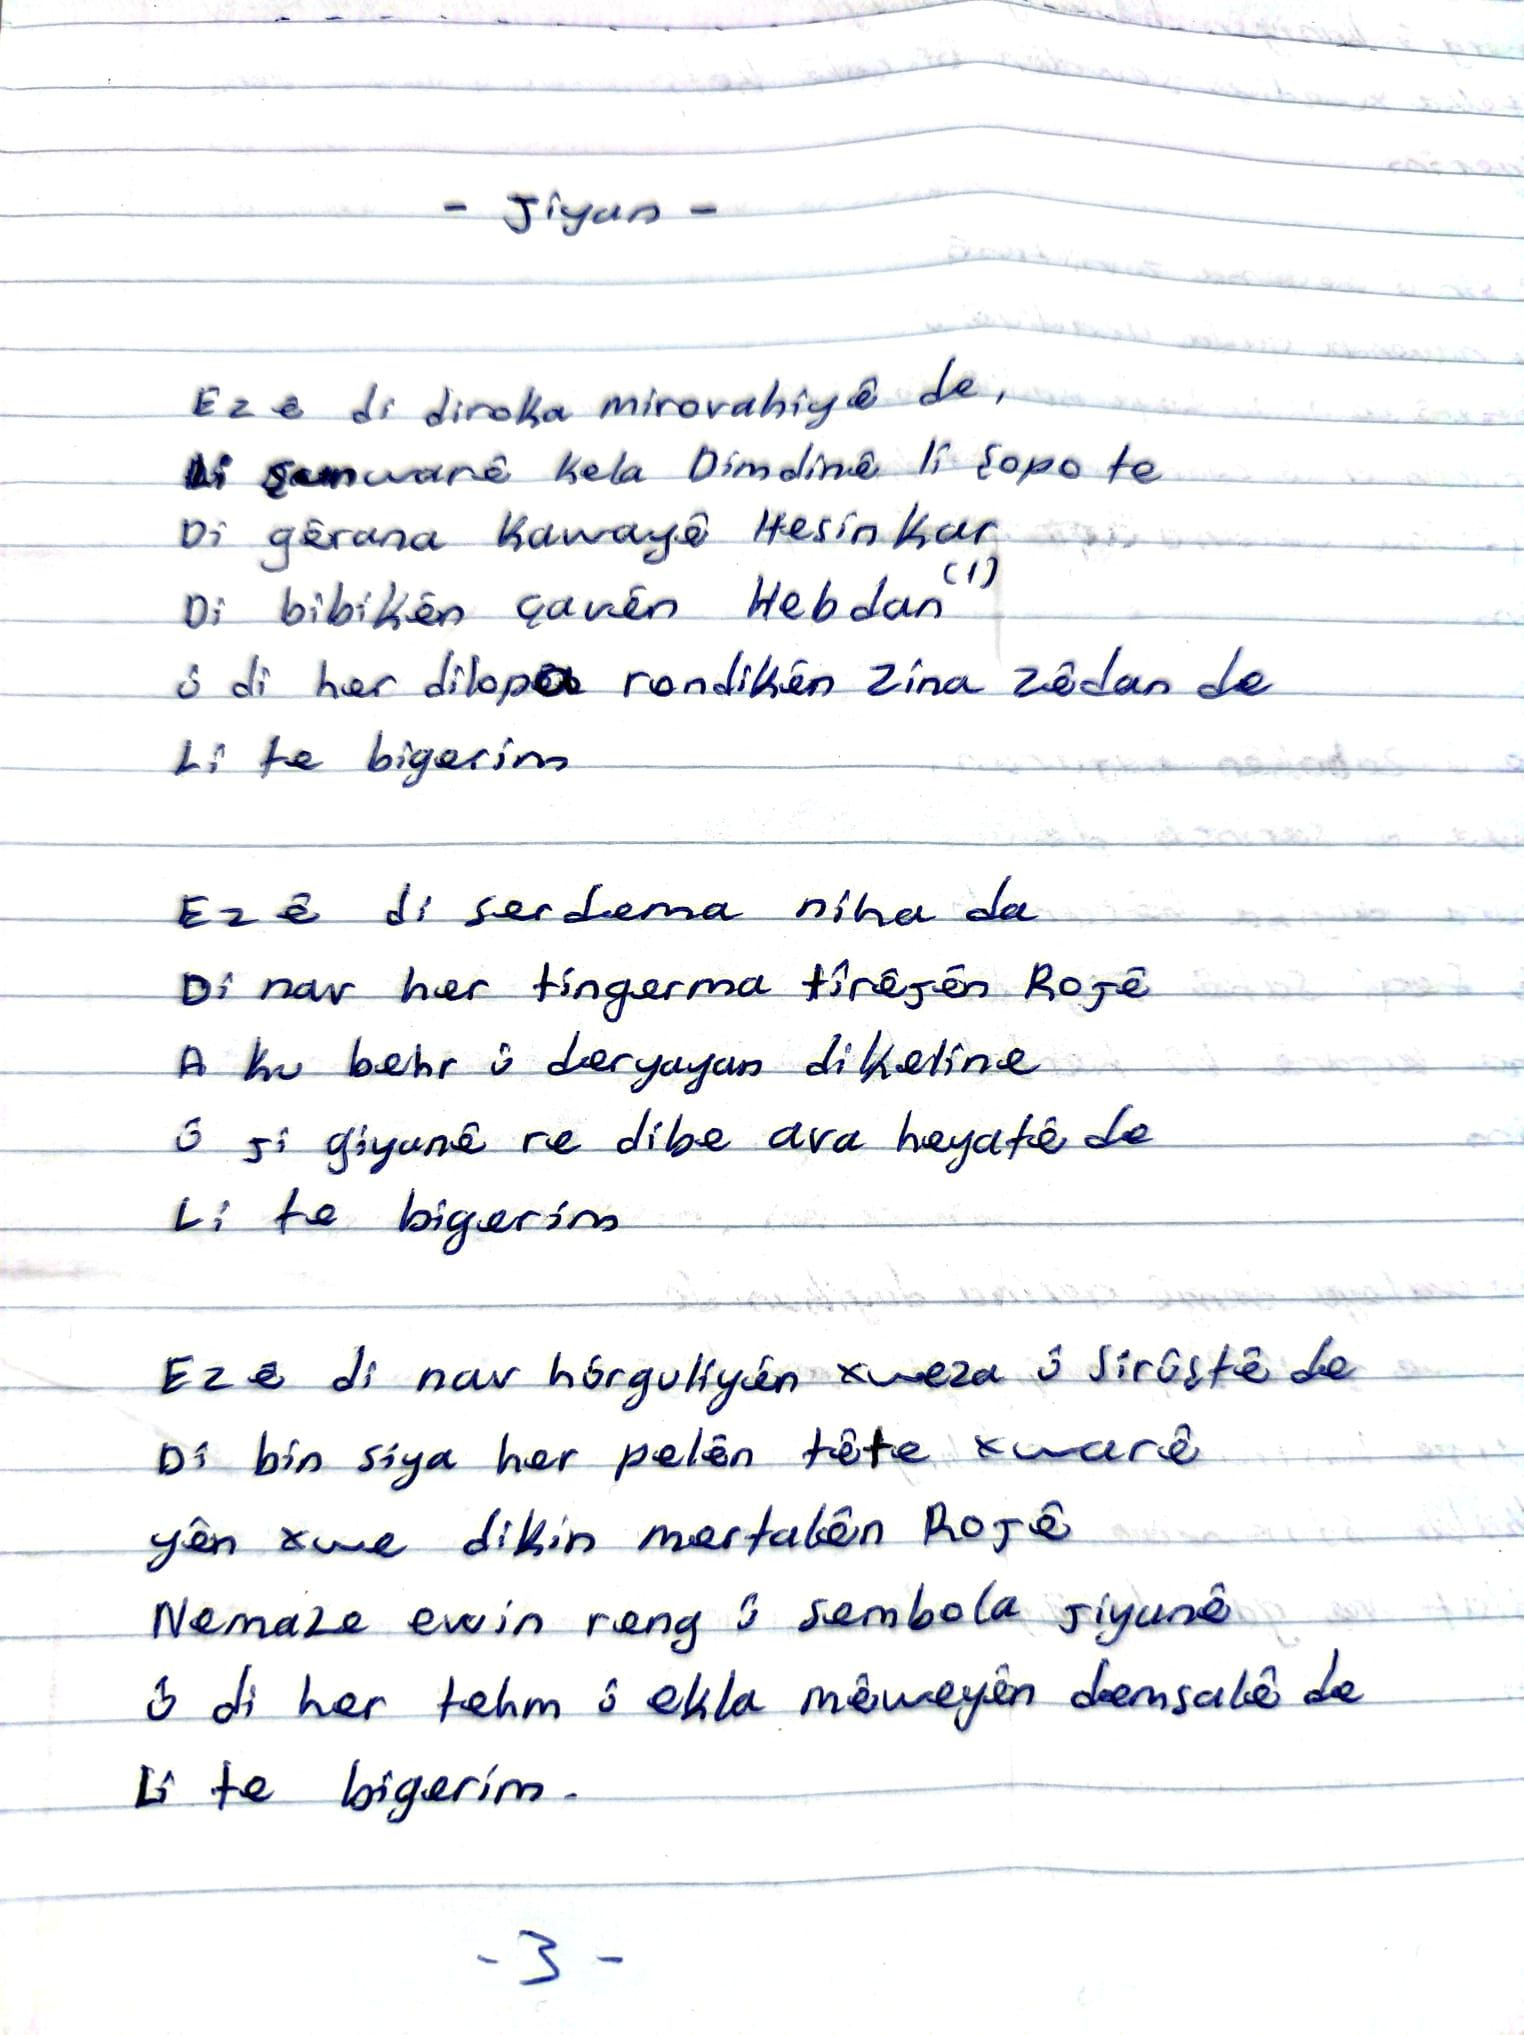 - Jiyan -
Ezê di diroka mirovahiyê de,
Li şunwarê kela Dimdimê li şopa te
Di gêrana Kawayê Hesinkar
Di bibikên çavên Hebdan (1)
û di her dilopa rondikên Zîna zêdan de
Li te bigerim
Ezê di serdema niha da
Di nav her tîngerma tîrêjên Rojê
A ku behr û deryayan dikelîne
û ji giyanê re dibe ava heyatê de
Li te bigerim
Ezê di nav hûrguliyên xweza û Sirûştê de
Di bin siya her pelên tête xwarê
yên xwe dikin mertalên Rojê
Nemaze ewin reng û sembola jiyanê
û di her tehm û ekla mêweyên demsalê de
Li te bigerim.
-3-